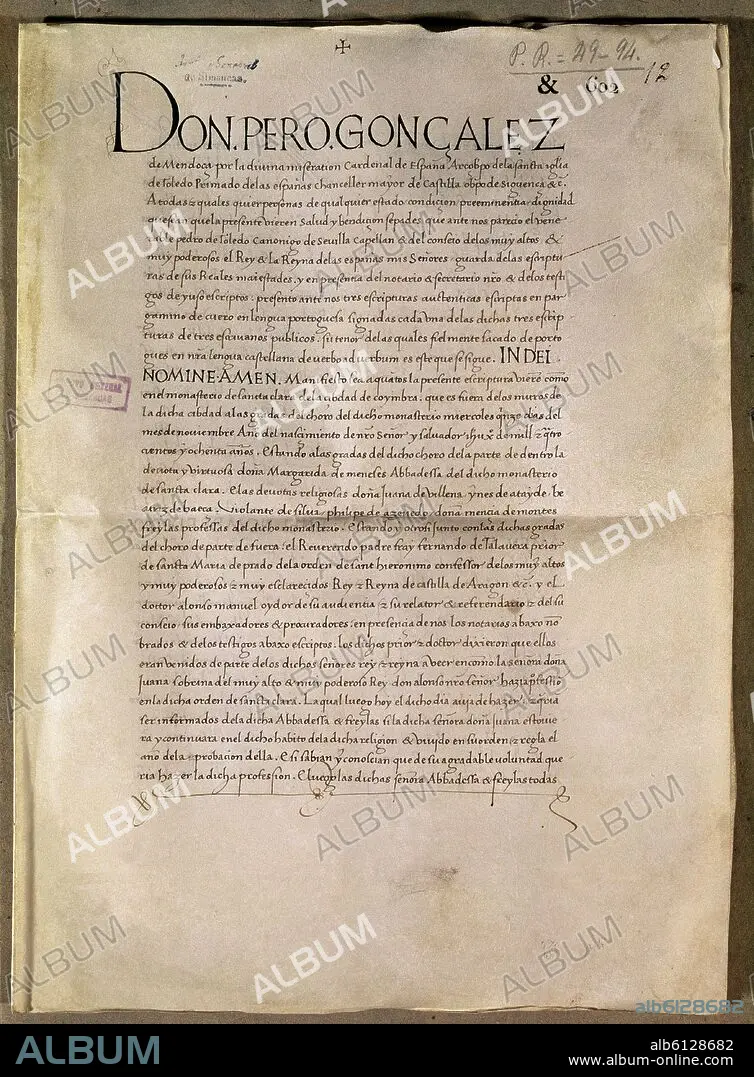 P. R. = 49-94.
12
& 602
Archivo General
de Simancas.
DON. PERO. GONÇALEZ
de Mendoça por la divina miseration Cardenal de España Arcobpo dela sancta iglia
de Toledo Primado delas españas chanceller mayor de Castilla obpo de siguença &c̃.
A todas & quales quier personas de qualquier estado condicion preeminentia & dignidad
que sean que la presente vieren Salud y bendicion sepades que ante nos parecio el vene
rable pedro de Toledo Canonigo de Sevilla Capellan & del consejo delos muy altos &
muy poderosos el Rey & la Reyna delas españas mis Señores. guarda delas escriptu
ras de sus Reales majestades. y en presentia del notario & secretario nr̃o. & delos testi
gos de yuso escriptos. presento ante nos tres escripturas autenticas escriptas en par
gamino de cuero en lengua portoguesa signadas cada una delas dichas tres escrip
turas de tres escrivanos publicos. su tenor delas quales fielmente sacado de porto
gues en nr̃a lengua castellana de verbo ad verbum es este que se sigue. IN DEI.
NOMINE. AMEN. Manifiesto sea a quãtos la presente escriptura vierẽ como
en el monasterio de sancta clara dela cibdad de coymbra. que es fuera delos muros de
la dicha cibdad a las gradas del choro del dicho monasterio miercoles q̃nze dias del
mes de noviembre Año del nascimiento de nr̃o Señor y salvador ihũ x̃o de mill & q̃tro
cientos y ochenta años. Estando a las gradas del dicho choro dela parte de dentro la
devota y virtuosa doña Margarida de meneses Abbadessa del dicho monasterio
de sancta clara. E las devotas religiosas doña Juana de villena. ynes de atayde. be
atriz de baeca. Violante de silva. philipe de azevedo. doña mencia de montes
freylas professas del dicho monasterio. Estando y otrosi junto con las dichas gradas
del choro de parte de fuera. el Reverendo padre fray fernando de Talavera prior
de sancta Maria de prado dela orden de sant hieronimo confessor delos muy altos
y muy poderosos & muy esclarecidos Rey & Reyna de castilla de Aragon &c̃. y el
doctor alonso manuel oydor de su audientia & su relator & referendario & del su
consejo. sus embaxadores & procuradores. en presencia de nos los notarios abaxo nõ
brados & delos testigos abaxo escriptos. Los dichos prior & doctor dixieron que ellos
eran venidos de parte delos dichos señores rey & reyna a veer en como la señora doña
juana sobrina del muy alto & muy poderoso Rey don alonso nr̃o señor. hazia p̃fessiõ
en la dicha orden de sancta clara. La qual luego hoy el dicho dia avia de hazer. & q̃ria
ser informados dela dicha Abbadessa & freylas si la dicha señora doña juana estovie
ra y continuara en el dicho habito dela dicha religion & vivido en su orden & regla el
año dela aprobacion della. E si sabian y conoscian que de su agradable voluntad que
ria hazer la dicha profession. E luego las dichas señora Abbadessa & freylas todas
ALBUM
alb6128682
alb6128682
www.album-online.com